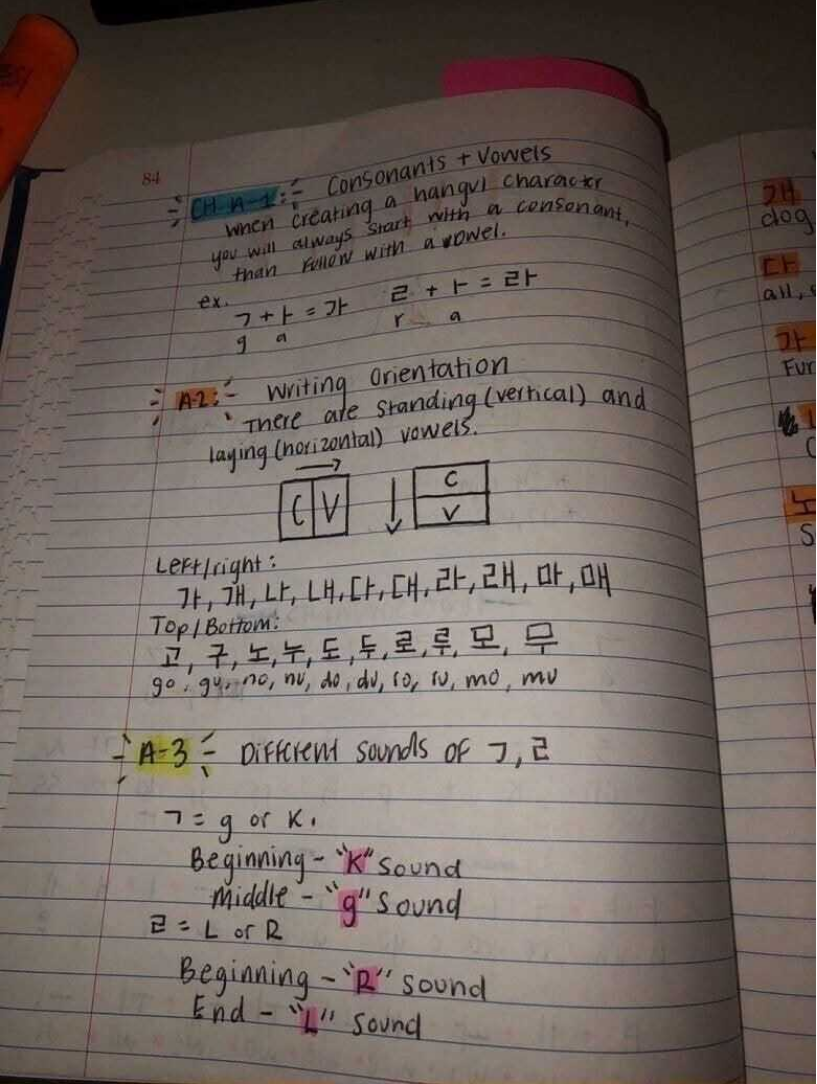 84
CH A-1: Consonants + Vowels
When creating a hangul character
you will always start with a consonant,
than follow with a vowel.
ex.
ㄱ + ㅏ = 가 ㄹ + ㅏ = 라
g a r a
A-2: Writing Orientation
There are standing (vertical) and
laying (horizontal) vowels.
C V
C
V
Left/right:
가, 개, 나, 내, 다, 대, 라, 래, 마, 매
Top/Bottom:
고, 구, 노, 누, 도, 두, 로, 루, 모, 무
go, gu, no, nu, do, du, ro, ru, mo, mu
A-3 Different sounds of ㄱ, ㄹ
ㄱ = g or K.
Beginning - "K" sound
middle - "g" sound
ㄹ = L or R
Beginning - "R" sound
End - "L" sound
개
dog
다
all,
가
노